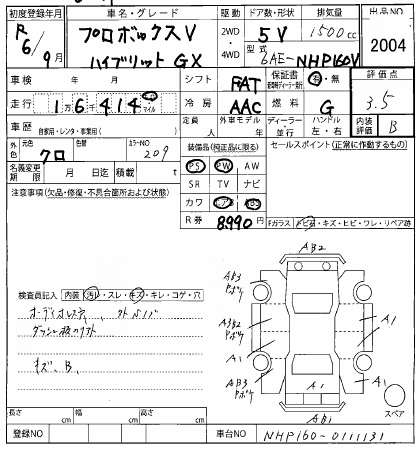 初度登録年月 車名・グレード 駆動 ドア数・形状 排気量 出品NO
R6/9月 プロボックスV ハイブリッド GX 2WD・4WD 5V 1500cc 2004
型式 6AE-NHP160V
車検 年 月 シフト FAT 保証書 有・無 評価点
走行 1万6414 マイル 冷房 AAC 燃料 G 3.5
車歴 自家用・レンタ・事業用( ) 定員 人 外車モデル 年 ディーラー・並行 ハンドル 左・右 内装評価 B
外色 元色 クロ 色替 カラーNO 209 装備品(純正品に限る) セールスポイント(正常に作動するもの)
名義変更期限 月 日迄 積載 t PS PW AW
注意事項(欠品・修復・不具合箇所および状態) SR TV ナビ
カワ エアB ABS
R券 8990円 Fガラス トビ石・キズ・ヒビ・ワレ・リペア跡
AB2
AB3
Pボウ
A3B2
Pボウ
A1
A1
AB3
Pボウ
A1
A1
AB1
スペア
検査員記入 内装 汚レ・スレ・キズ・キレ・コゲ・穴
オーディオレス
キズ、B、
長さ cm 幅 cm 高さ cm
登録NO 車台NO NHP160-0111131